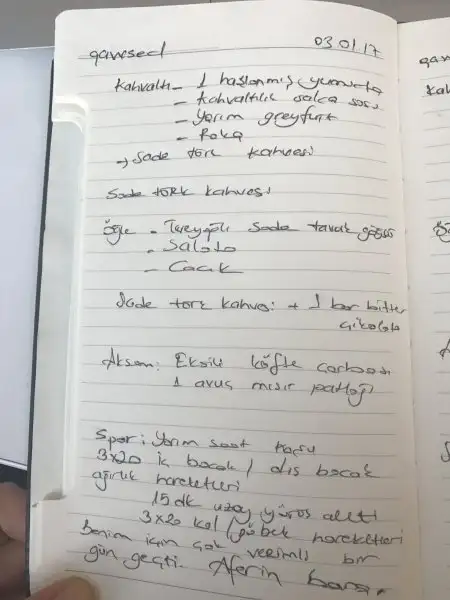 03.01.17
Kahvaltı - 1 haşlanmış yumurta
- Kahvaltılık salça sosu
- Yarım greyfurt
- Roka
→ Sade türk kahvesi
Sade türk kahvesi
öğle - Tereyağlı sade tavuk göğsü
- Salata
- Cacık
Sade türk kahvesi + 1 bar bitter
çikolata
Akşam: Ekşili köfte çorbası
1 avuç mısır patlağı
Spor: Yarım saat koşu
3x20 iç bacak / dış bacak
ağırlık hareketleri
15 dk uzay yürüyüş aleti
3x20 kol / göbek hareketleri
Benim için çok verimli bir
gün geçti. Aferin bana